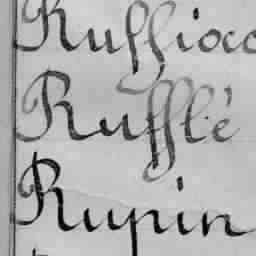 Ruffioc
Rufflé
Rupin